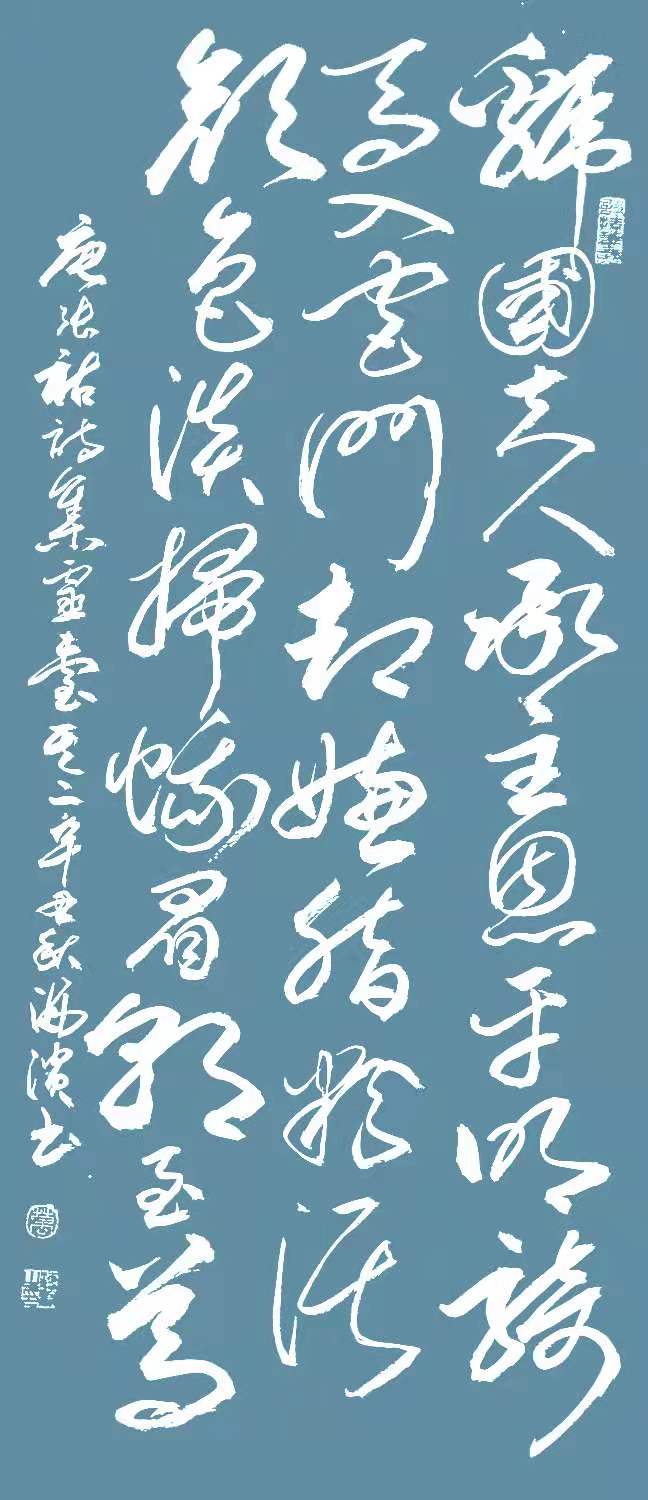 虢國夫人承主恩平明騎
馬入宮門却嫌脂粉涴
顏色淡掃蛾眉朝至尊
唐張祜詩集靈臺其二辛丑秋海濱書